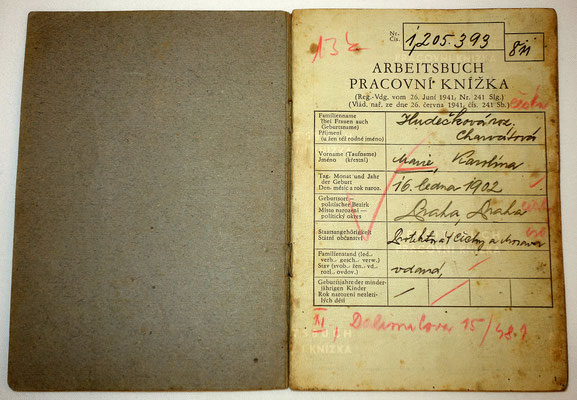 13 k
Nr.
Čís.
1,205.393
ARBEITSBUCH
PRACOVNÍ KNÍŽKA
(Reg.-Vdg. vom 26. Juni 1941, Nr. 241 Slg.)
(Vlád. nař. ze dne 26. června 1941, čís. 241 Sb.)
Familienname
(bei Frauen auch
Geburtsname)
Příjmení
(u žen též rodné jméno)
Hudečková roz.
Charvátová
Vorname (Taufname)
Jméno (křestní)
Marie, Karolina
Tag, Monat und Jahr
der Geburt
Den, měsíc a rok naroz.
16. ledna 1902
Geburtsort—
politischer Bezirk
Místo narození—
politický okres
Praha, Praha
Staatsangehörigkeit
Státní občanství
Protektorát Čechy a Morava
Familienstand (led.,
verh., gesch., verw.)
Stav (svob., žen., vd.,
rozl., ovdov.)
vdaná,
Geburtsjahre der minder-
jährigen Kinder
Rok narození nezleti-
lých dětí
XI,
Dalimilova 15/48.
KNÍŽKA